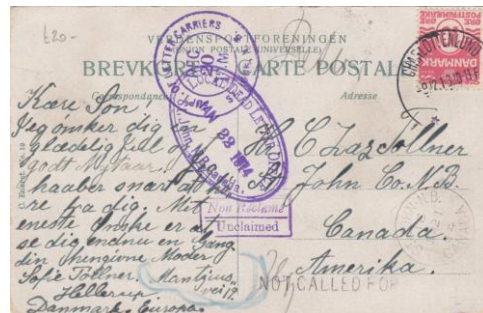 £20-
VERDENSPOSTFORENINGEN
(UNION POSTALE UNIVERSELLE)
BREVKORT CARTE POSTALE
Correspondance
Adresse
DANMARK
CHARLOTTENLUND
LETTER CARRIERS
20
DEAD LETTER OFFICE
JAN 22 1914
N.B. Canada.
Kære Son,
Jeg ønsker dig en
glædelig Jul og
godt Nytaar.
haaber snart at hø-
re fra dig. Mit
eneste Ønske er at
se dig endnu en Gang.
din hengivne Moder
Sofie Töllner. Mantzius
vei 19.
Hellerup.
Danmark, Europa.
H. Chaz Tollner
St. John Co. N.B.
Canada.
Amerika.
Non Réclamé
Unclaimed
NOT CALLED FOR